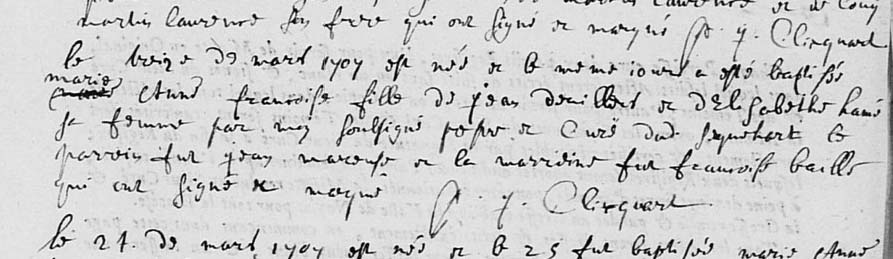 martin laurence son frere qui ont signé et marqué J. Clicquart
le treize de mars 1707 est née et le meme jour a esté baptisée
marie Anne francoise fille de jean devillers et d'Elisabethe hamé
sa femme par moy soussigné prestre et Curé dud le
parrein fut jean et la marreine fut francoise baille
qui ont signé et marqué J. Clicquart
le 21. de mars 1707 est née et le 25 fut baptisée marie Anne